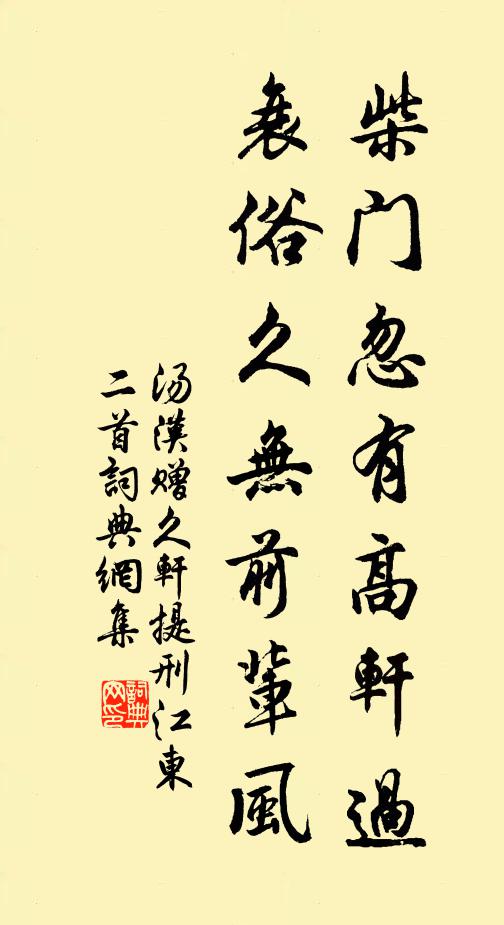 柴门忽有高軒過
衰俗久無前輩風
汤漢赠久軒提刑江東
二首詞典網集
詞典
网印